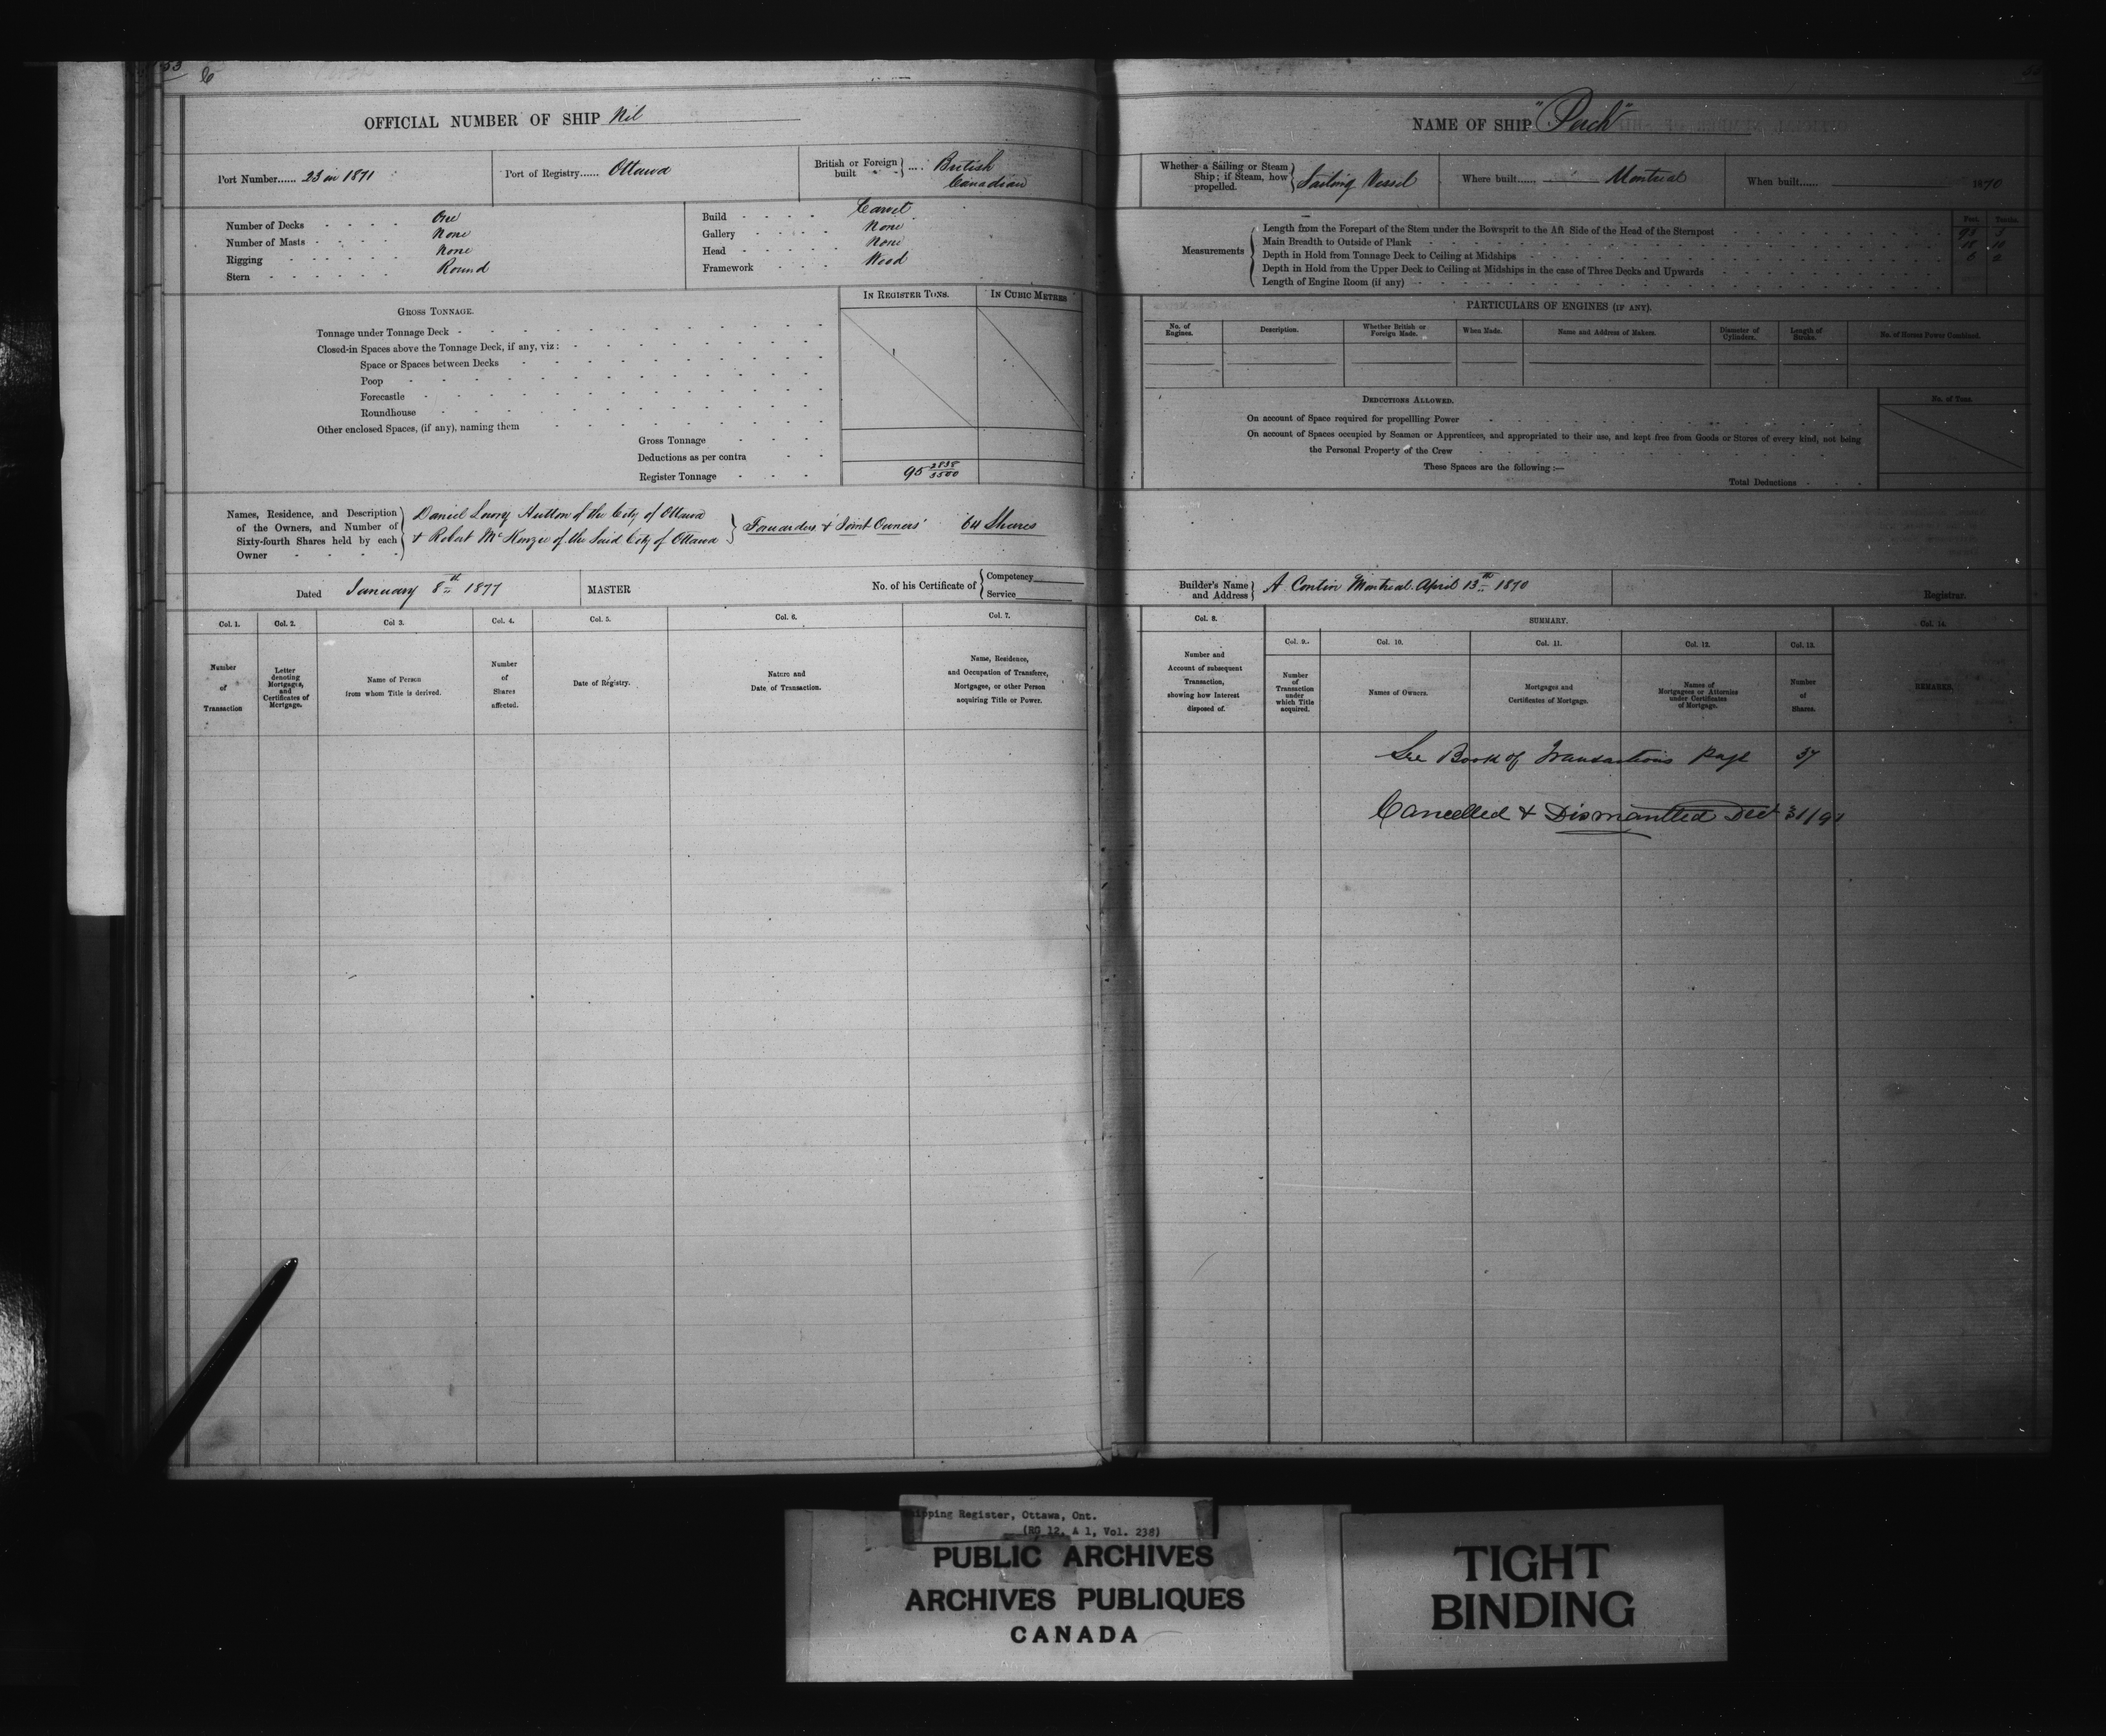 53
OFFICIAL NUMBER OF SHIP Nil
Port Number...... 23 in 1871
Port of Registry...... Ottawa
British or Foreign built .... British Canadian
Number of Decks - - - - One
Number of Masts - - - - None
Rigging - - - - - - None
Stern - - - - - - Round
Build - - - - Carvel
Gallery - - - - None
Head - - - - - None
Framework - - - Wood
GROSS TONNAGE.
IN REGISTER TONS.
IN CUBIC METRES
Tonnage under Tonnage Deck
Closed-in Spaces above the Tonnage Deck, if any, viz:
Space or Spaces between Decks
Poop
Forecastle
Roundhouse
Other enclosed Spaces, (if any), naming them
Gross Tonnage
Deductions as per contra
Register Tonnage 95 2838/3500
Names, Residence, and Description of the Owners, and Number of Sixty-fourth Shares held by each Owner
Daniel Lowry Hutton of the City of Ottawa
+ Robert McKenzie of the Said City of Ottawa
Forwarders & Joint Owners 64 Shares
Dated January 8th 1877
MASTER
No. of his Certificate of Competency
Service
Col. 1.
Col. 2.
Col 3.
Col. 4.
Col. 5.
Col. 6.
Col. 7.
Number of Transaction
Letter denoting Mortgages, and Certificates of Mortgage.
Name of Person from whom Title is derived.
Number of Shares affected.
Date of Registry.
Nature and Date of Transaction.
Name, Residence, and Occupation of Transferee, Mortgagee, or other Person acquiring Title or Power.
NAME OF SHIP "Perch"
Whether a Sailing or Steam Ship; if Steam, how propelled. Sailing Vessel
Where built...... Montreal
When built...... 1870
Measurements
Feet.
Tenths.
Length from the Forepart of the Stem under the Bowsprit to the Aft Side of the Head of the Sternpost
Main Breadth to Outside of Plank
Depth in Hold from Tonnage Deck to Ceiling at Midships
Depth in Hold from the Upper Deck to Ceiling at Midships in the case of Three Decks and Upwards
Length of Engine Room (if any)
PARTICULARS OF ENGINES (IF ANY).
No. of Engines.
Description.
Whether British or Foreign Made.
When Made.
Name and Address of Makers.
Diameter of Cylinders.
Length of Stroke.
No. of Horses Power Combined.
DEDUCTIONS ALLOWED.
No. of Tons.
On account of Space required for propellling Power
On account of Spaces occupied by Seamen or Apprentices, and appropriated to their use, and kept free from Goods or Stores of every kind, not being
the Personal Property of the Crew
These Spaces are the following:—
Total Deductions
Builder's Name and Address A Contin Montreal April 13th 1870
Registrar.
Col. 8.
SUMMARY.
Col. 14.
Col. 9.
Col. 10.
Col. 11.
Col. 12.
Col. 13.
Number and Account of subsequent Transaction, showing how Interest disposed of.
Number of Transaction under which Title acquired.
Names of Owners.
Mortgages and Certificates of Mortgage.
Names of Mortgagees or Attornies under Certificates of Mortgage.
Number of Shares.
REMARKS.
See Book of Transactions page 37
Cancelled & Dismantled Dec 31/91
Shipping Register, Ottawa, Ont.
(RG 12, A 1, Vol. 238)
PUBLIC ARCHIVES
ARCHIVES PUBLIQUES
CANADA
TIGHT
BINDING